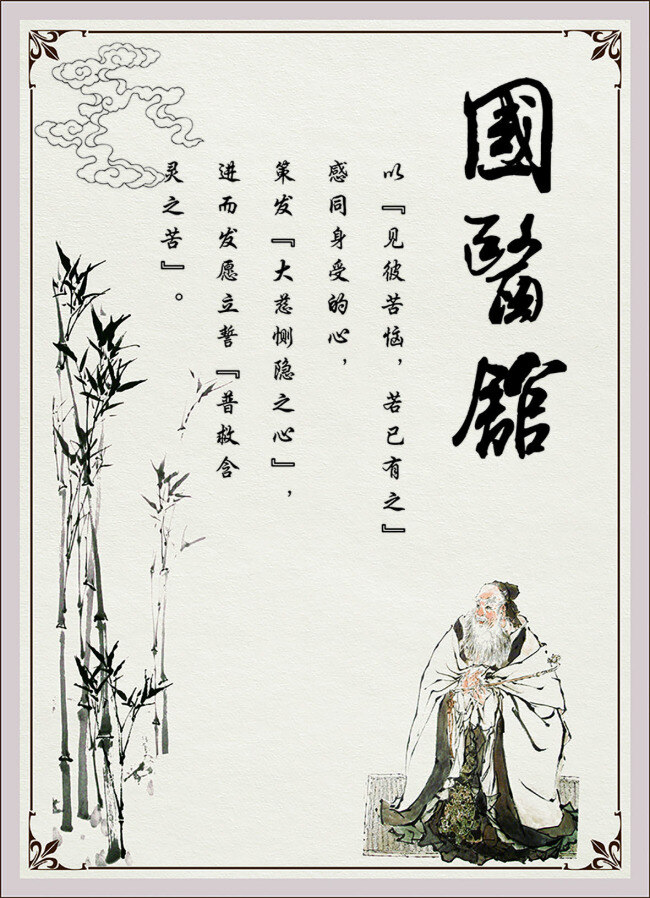 國醫館
以『见彼苦恼，若已有之』
感同身受的心，
策发『大慈恻隐之心』，
进而发愿立誓『普救含
灵之苦』。